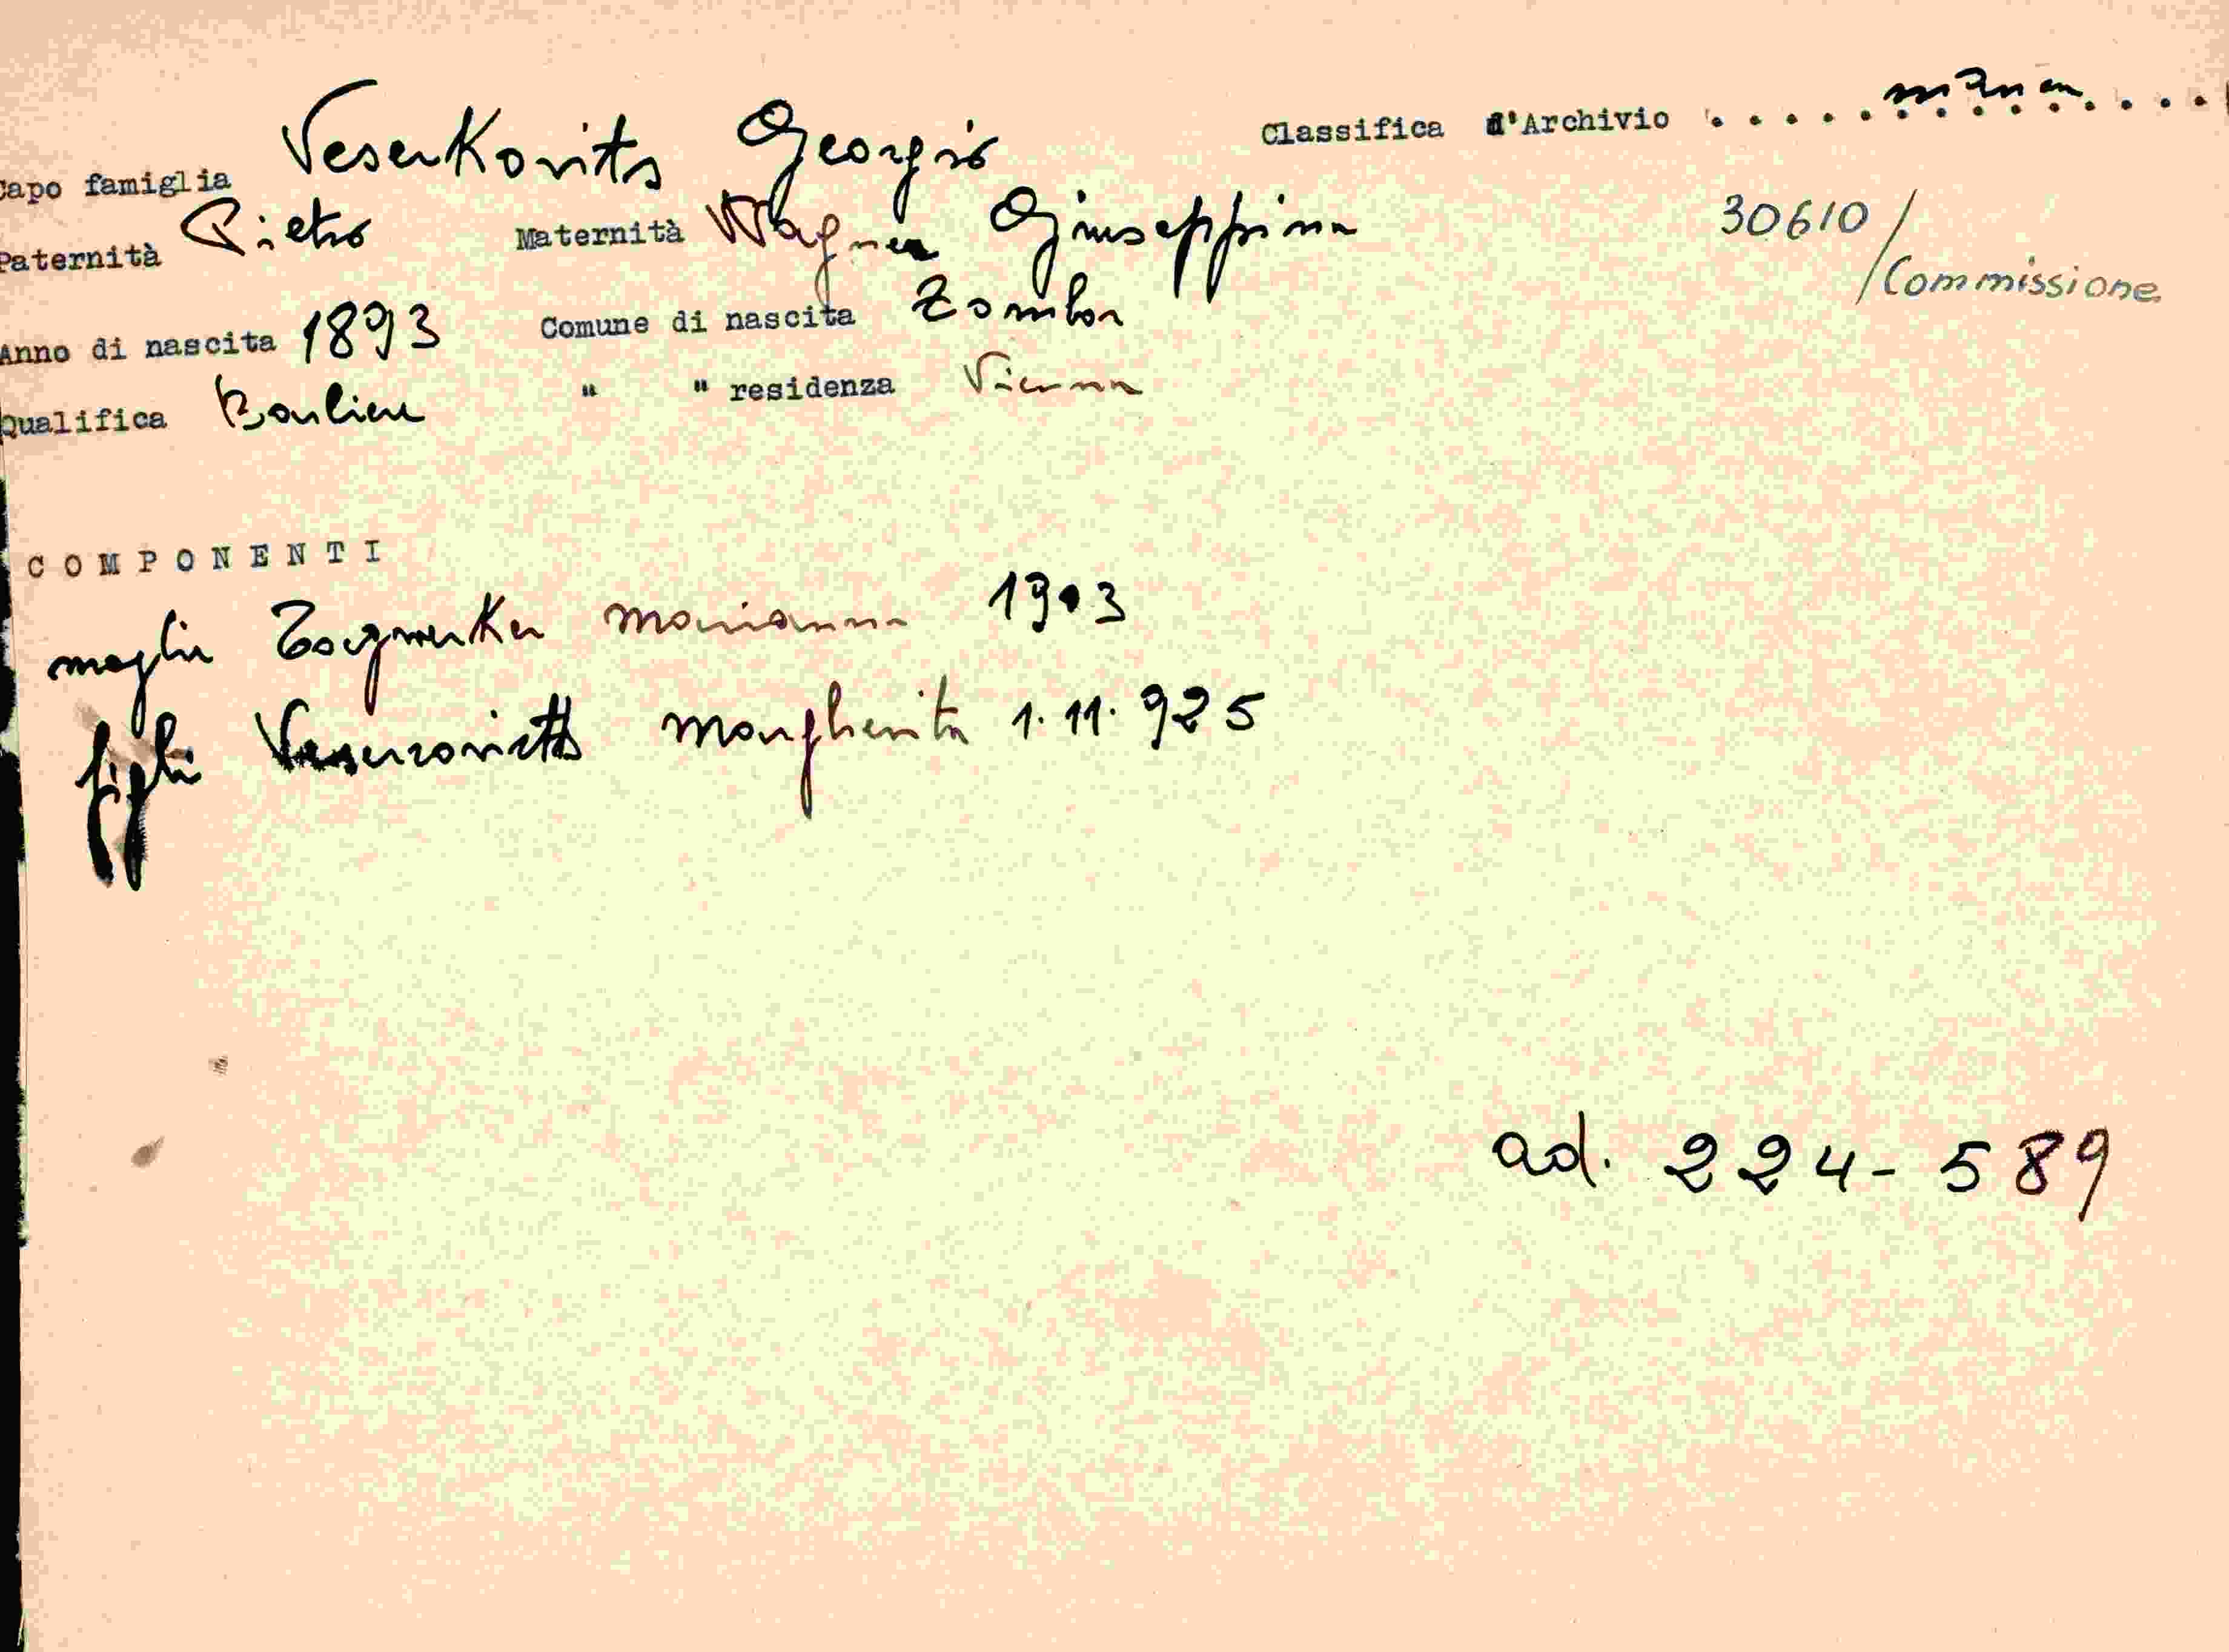 Classifica d'Archivio . . . . . . . . . . . . . .
Capo famiglia Veserkovits Georgio
Paternità Pietro Maternità Wagner Giuseppina
30610 / Commissione
Anno di nascita 1893 Comune di nascita Zombor
Qualifica Barbiere " " residenza Vienna
COMPONENTI
moglie Marianna 1903
figli Margherita 1.11.925
ad. 224-589